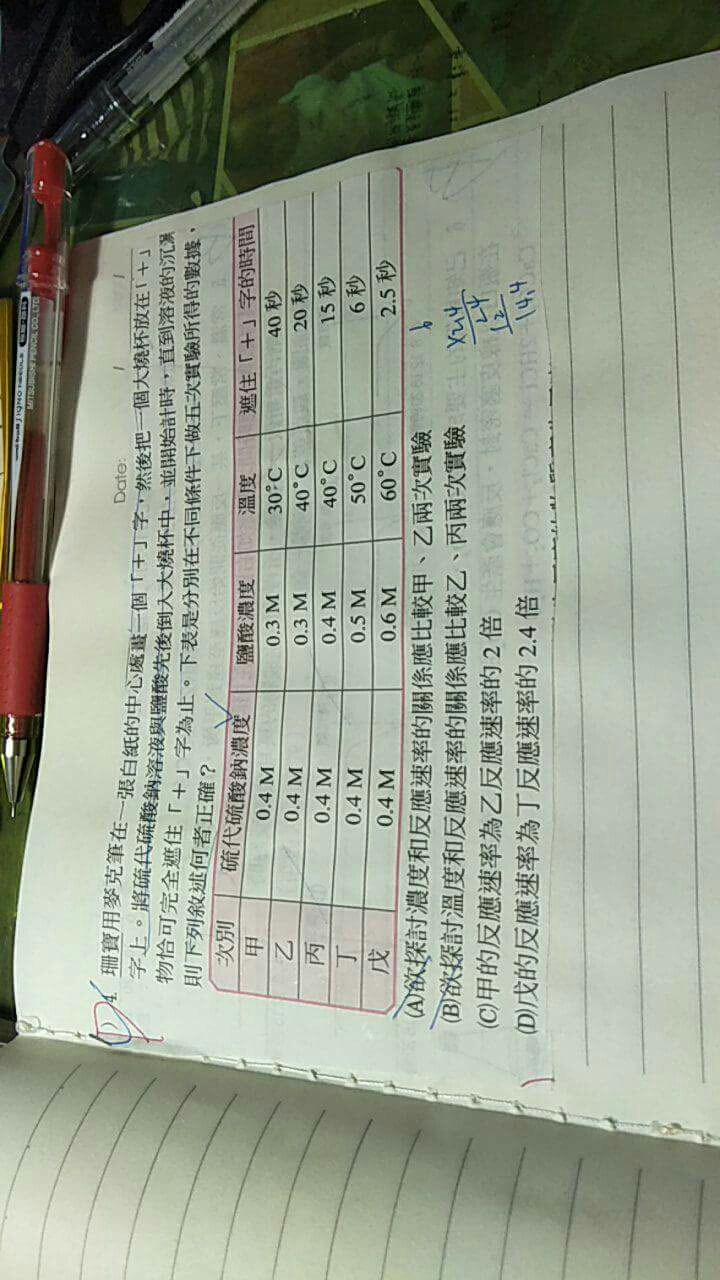 Date: / /
4. 珊寶用麥克筆在一張白紙的中心處畫一個「+」字，然後把一個大燒杯放在「+」
字上。將硫代硫酸鈉溶液與鹽酸先後倒入大燒杯中，並開始計時，直到溶液的沉澱
物恰可完全遮住「+」字為止。下表是分別在不同條件下做五次實驗所得的數據，
則下列敘述何者正確？
次別 硫代硫酸鈉濃度 鹽酸濃度 溫度 遮住「+」字的時間
甲 0.4 M 0.3 M 30°C 40 秒
乙 0.4 M 0.3 M 40°C 20 秒
丙 0.4 M 0.4 M 40°C 15 秒
丁 0.4 M 0.5 M 50°C 6 秒
戊 0.4 M 0.6 M 60°C 2.5 秒
(A)欲探討濃度和反應速率的關係應比較甲、乙兩次實驗
(B)欲探討溫度和反應速率的關係應比較乙、丙兩次實驗
(C)甲的反應速率為乙反應速率的 2 倍
(D)戊的反應速率為丁反應速率的 2.4 倍
6
×2.4
24
12
14.4